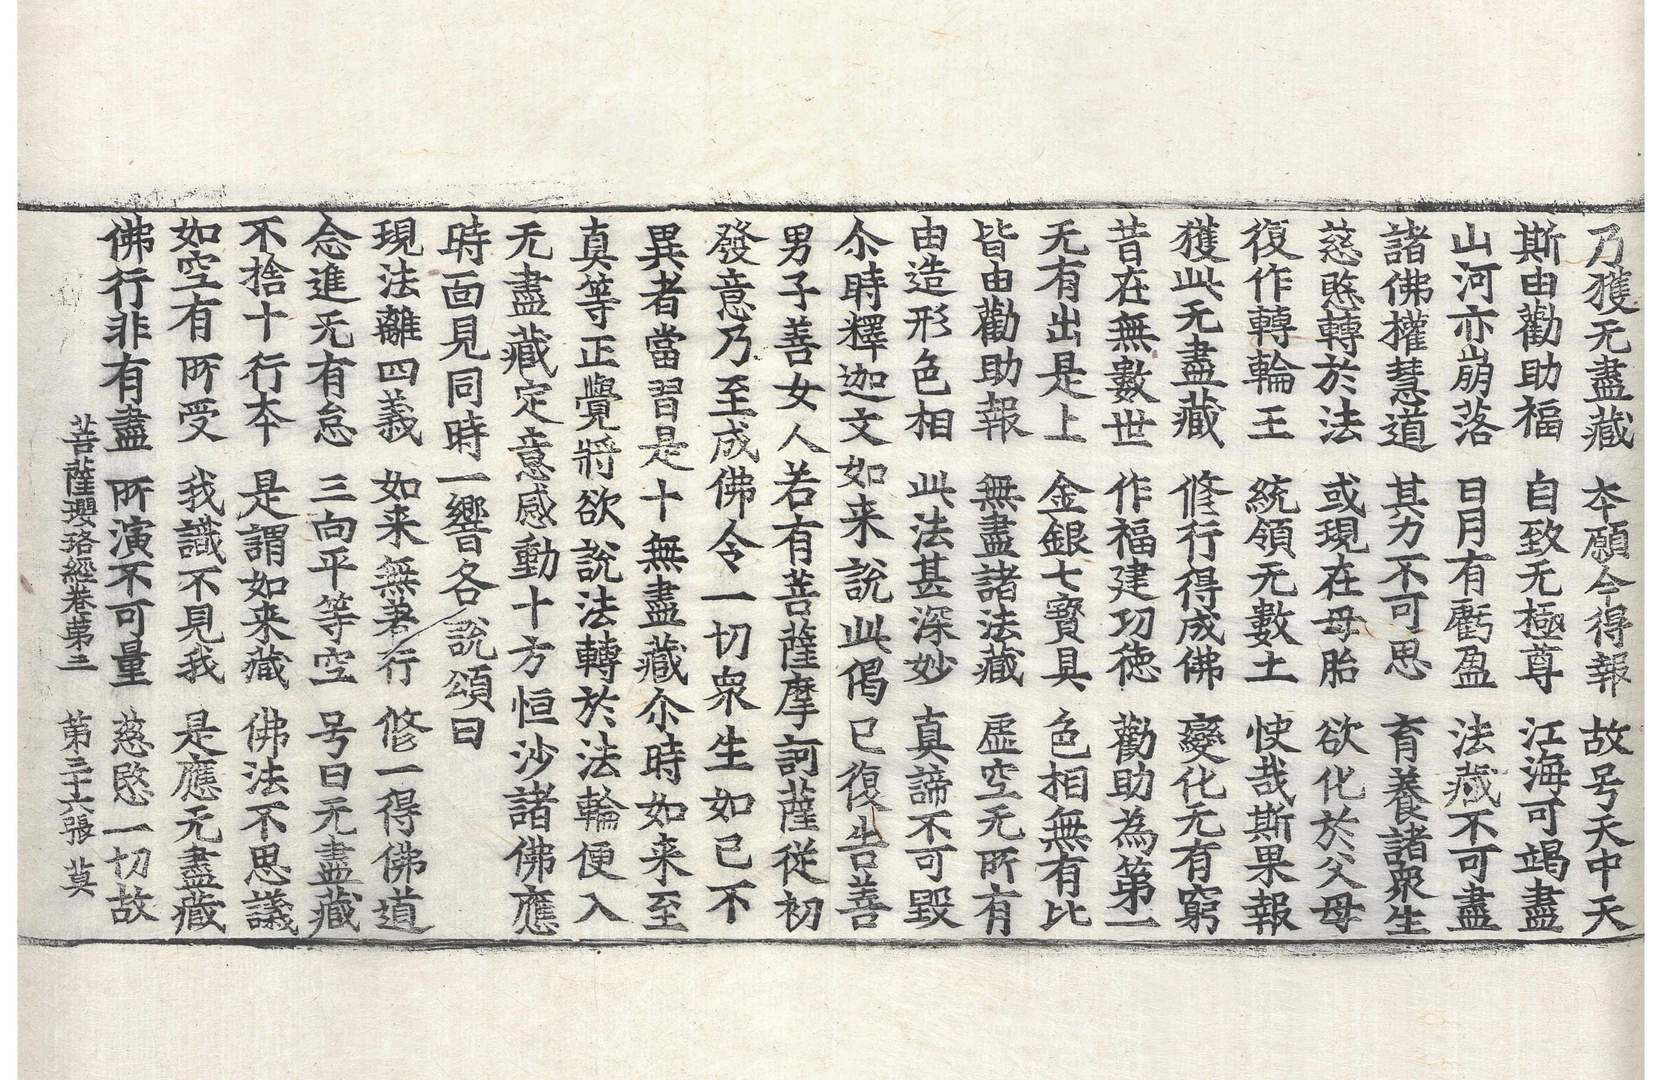 乃獲无盡藏 本願今得報 故号天中天
斯由勸助福 自致无極尊 江海可竭盡
山河亦崩落 日月有虧盈 法藏不可盡
諸佛權慧道 其力不可思 育養諸衆生
慈愍轉於法 或現在母胎 欲化於父母
復作轉輪王 統領无數土 快哉斯果報
獲此无盡藏 修行得成佛 變化无有窮
昔在無數世 作福建功德 勸助為第一
无有出是上 金銀七寶具 色相無有比
皆由勸助報 無盡諸法藏 虛空无所有
由造形色相 此法甚深妙 真諦不可毀
尒時釋迦文如来說此偈已復告善
男子善女人若有菩薩摩訶薩從初
發意乃至成佛令一切衆生如已不
異者當習是十無盡藏尒時如来至
真等正覺將欲說法轉於法輪便入
无盡藏定意感動十方恒沙諸佛應
時面見同時一響各說頌曰
現法離四義 如来無著行 修一得佛道
念進无有怠 三向平等空 号曰无盡藏
不捨十行本 是謂如来藏 佛法不思議
如空有所受 我識不見我 是應无盡藏
佛行非有盡 所演不可量 慈愍一切故
菩薩瓔珞經卷第三 第三十六張 莫